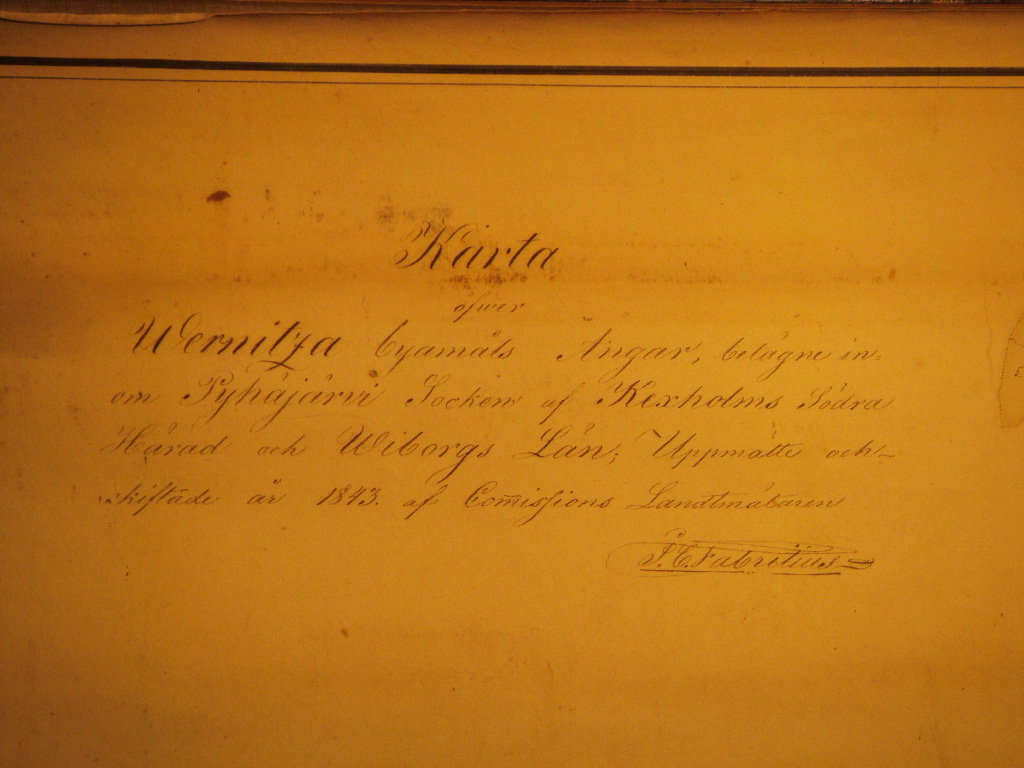 Karta
öfwer
Wernitza byamäls Ängar, belägne in=
om Pyhäjärvi Socken af Kexholms Södra
Härad och Wiborgs Län; Uppmätte och
skiftade år 1843. af Comissions Landtmätaren
Fabritius